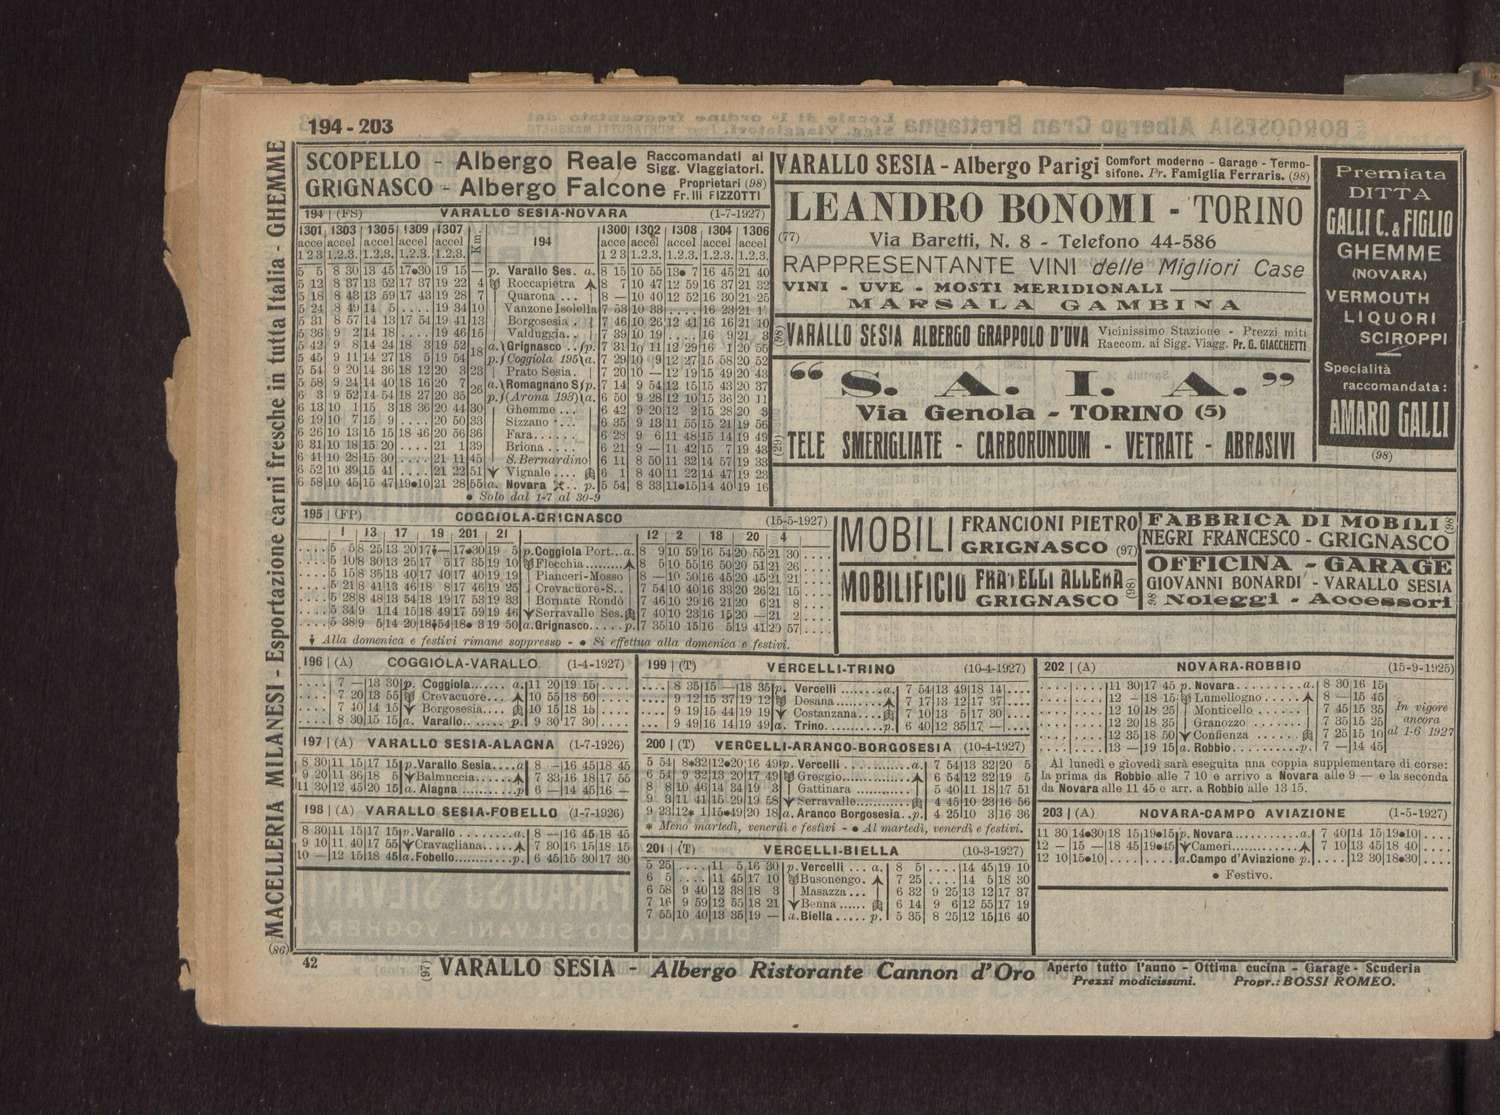 194 - 203
SCOPELLO - Albergo Reale Raccomandati ai Sigg. Viaggiatori.
GRIGNASCO - Albergo Falcone Proprietari (98) Fr.lli FIZZOTTI
MACELLERIA MILANESI - Esportazione carni fresche in tutta Italia - GHEMME
(86)
194 | (FS) VARALLO SESIA-NOVARA (1-7-1927)
1301 1303 1305 1309 1307 Km. 194 1300 1302 1308 1304 1306
accel accel accel accel accel accel accel accel accel accel
1 2 3 1.2.3. 1.2.3. 1.2.3. 1.2.3. 1 2 3 1.2.3. 1.2.3. 1.2.3. 1.2.3.
5 5 8 30 13 45 17●30 19 15 — p. Varallo Ses. a. 8 15 10 55 13● 7 16 45 21 40
5 12 8 37 13 52 17 37 19 22 4 Roccapietra 8 7 10 47 12 59 16 37 21 32
5 18 8 43 13 59 17 43 19 28 7 Quarona ... 8 — 10 40 12 52 16 30 21 25
5 24 8 49 14 5 .... 19 34 10 Vanzone Isolella 7 53 10 33 .... 16 23 21 1
5 31 8 57 14 13 17 54 19 41 13 Borgosesia . 7 46 10 26 12 41 16 16 21 10
5 36 9 2 14 18 .... 19 46 15 Valduggia.. 7 39 10 19 .... 16 9 21 3
5 42 9 8 14 24 18 3 19 52 18 a. Grignasco .. p. 7 31 10 11 12 29 16 1 20 55
5 45 9 11 14 27 18 5 19 54 p. (Coggiola 195) a. 7 29 10 9 12 27 15 58 20 52
5 54 9 20 14 36 18 12 20 3 23 Prato Sesia. 7 20 10 — 12 19 15 49 20 43
5 58 9 24 14 40 18 16 20 7 26 a. Romagnano S. p. 7 14 9 54 12 15 15 43 20 37
6 3 9 52 14 54 18 27 20 35 p. (Arona 193) a. 6 50 9 28 12 10 15 36 20 11
6 13 10 1 15 3 18 36 20 44 30 Ghemme ... 6 42 9 20 12 2 15 28 20 3
6 19 10 7 15 9 .... 20 50 33 Sizzano ... 6 35 9 13 11 55 15 21 19 56
6 26 10 13 15 15 18 46 20 56 36 Fara...... 6 28 9 6 11 48 15 14 19 49
6 31 10 18 15 20 .... 21 1 39 Briona .... 6 21 9 — 11 42 15 7 19 43
6 41 10 28 15 30 .... 21 11 45 S. Bernardino 6 11 8 50 11 32 14 57 19 33
6 52 10 39 15 41 .... 21 22 51 Vignale .... 6 1 8 40 11 22 14 47 19 23
6 58 10 45 15 47 19●10 21 28 55 a. Novara .. p. 5 54 8 33 11●15 14 40 19 16
● Solo dal 1-7 al 30-9
VARALLO SESIA - Albergo Parigi Comfort moderno - Garage - Termosifone. Pr. Famiglia Ferraris. (98)
LEANDRO BONOMI - TORINO
(77) Via Baretti, N. 8 - Telefono 44-586
RAPPRESENTANTE VINI delle Migliori Case
VINI - UVE - MOSTI MERIDIONALI
MARSALA GAMBINA
(98) VARALLO SESIA ALBERGO GRAPPOLO D'UVA Vicinissimo Stazione - Prezzi miti
Raccom. ai Sigg. Viagg. Pr. G. GIACCHETTI
“S. A. I. A.”
Via Genola - TORINO (5)
(29) TELE SMERIGLIATE - CARBORUNDUM - VETRATE - ABRASIVI
Premiata
DITTA
GALLI C. & FIGLIO
GHEMME
(NOVARA)
VERMOUTH
LIQUORI
SCIROPPI
Specialità
raccomandata:
AMARO GALLI
(98)
195 | (FP) COGGIOLA-GRIGNASCO (15-5-1927)
1 13 17 19 201 21 12 2 18 20 4
p. Coggiola Port... a. 8 9 10 59 16 54 20 55 21 30
Flecchia......... 8 5 10 55 16 50 20 51 21 26
Pianceri-Mosso 8 — 10 50 16 45 20 45 21 21
Crevacuore-S.. 7 54 10 40 16 33 20 26 21 15
Bornate Rondò 7 46 10 29 16 21 20 6 21 8
Serravalle Ses. 7 40 10 23 16 15 20 — 21 2
a. Grignasco..... p. 7 35 10 15 16 5 19 41 20 57
Alla domenica e festivi rimane soppresso - ● Si effettua alla domenica e festivi.
MOBILI FRANCIONI PIETRO
GRIGNASCO (97)
MOBILIFICIO FRATELLI ALLERA
GRIGNASCO (98)
FABBRICA DI MOBILI
NEGRI FRANCESCO - GRIGNASCO
98
OFFICINA - GARAGE
GIOVANNI BONARDI - VARALLO SESIA
98 Noleggi - Accessori
196 | (A) COGGIOLA-VARALLO (1-4-1927)
.... 7 — 13 30 p. Coggiola....... a. 11 20 19 15 ....
.... 7 20 13 55 Crevacuore.... 10 55 18 50 ....
.... 7 40 14 15 Borgosesia.... 10 15 18 15 ....
.... 8 30 15 15 a. Varallo.. p. 9 30 17 30 ....
197 | (A) VARALLO SESIA-ALAGNA (1-7-1926)
8 30 11 15 17 15 p. Varallo Sesia.... a. 8 — 16 45 18 45
9 20 11 36 18 5 Balmuccia....... 7 33 16 18 17 55
11 30 12 45 20 15 a. Alagna ......... p. 6 — 14 45 16 —
198 | (A) VARALLO SESIA-FOBELLO (1-7-1926)
8 30 11 15 17 15 p. Varallo ......... a. 8 — 16 45 18 45
9 10 11 40 17 55 Cravagliana..... 7 30 16 15 18 15
10 — 12 15 18 45 a. Fobello.......... p. 6 45 15 30 17 30
199 | (T) VERCELLI-TRINO (10-4-1927)
.... 8 35 15 — 18 35 p. Vercelli ........ a. 7 54 13 49 18 14 ....
.... 9 12 15 37 19 12 Desana......... 7 17 13 12 17 37 ....
.... 9 19 15 44 19 19 Costanzana.... 7 10 13 5 17 30 ....
.... 9 49 16 14 19 49 a. Trino........... p. 6 40 12 35 17 — ....
200 | (T) VERCELLI-ARANCO-BORGOSESIA (10-4-1927)
5 54 8●32 12●20 16 49 p. Vercelli ........ a. 7 54 13 32 20 5
6 54 9 32 13 20 17 49 Greggio........ 6 54 12 32 19 5
8 8 10 46 14 34 19 3 Gattinara ...... 5 40 11 18 17 51
9 3 11 41 15 29 19 58 Serravalle....... 4 45 10 23 16 56
9 23 12* 1 15●49 20 18 a. Aranco Borgosesia.. p. 4 25 10 3 16 36
* Meno martedì, venerdì e festivi - ● Al martedì, venerdì e festivi.
201 | (T) VERCELLI-BIELLA (10-3-1927)
5 25 .... 11 5 16 30 p. Vercelli ... a. 8 5 .... 14 45 19 10
6 5 .... 11 45 17 10 Busonengo. 7 25 .... 14 5 18 30
6 58 9 40 12 38 18 3 Masazza ... 6 32 9 25 13 12 17 37
7 16 9 59 12 55 18 21 Benna ..... 6 14 9 6 12 55 17 19
7 55 10 40 13 35 19 — a. Biella ..... p. 5 35 8 25 12 15 16 40
202 | (A) NOVARA-ROBBIO (15-9-1925)
11 30 17 45 p. Novara.......... a. 8 30 16 15
12 — 18 15 Lumellogno ...... 8 — 15 45
12 10 18 25 Monticello ....... 7 45 15 35
12 20 18 35 Granozzo ....... 7 35 15 25
12 35 18 50 Confienza ...... 7 25 15 10
13 — 19 15 a. Robbio.......... p. 7 — 14 45
In vigore ancora al 1-6 1927
Al lunedì e giovedì sarà eseguita una coppia supplementare di corse:
la prima da Robbio alle 7 10 e arrivo a Novara alle 9 — e la seconda
da Novara alle 11 45 e arr. a Robbio alle 13 15.
203 | (A) NOVARA-CAMPO AVIAZIONE (1-5-1927)
11 30 14●30 18 15 19●15 p. Novara......... a. 7 40 14 15 19●10 ....
12 — 15 — 18 45 19●45 Cameri......... 7 10 13 45 18 40 ....
12 10 15●10 .... .... a. Campo d'Aviazione p. .... 12 30 18●30 ....
● Festivo.
42
(97) VARALLO SESIA - Albergo Ristorante Cannon d'Oro Aperto tutto l'anno - Ottima cucina - Garage - Scuderia
Prezzi modicissimi. Propr.: BOSSI ROMEO.